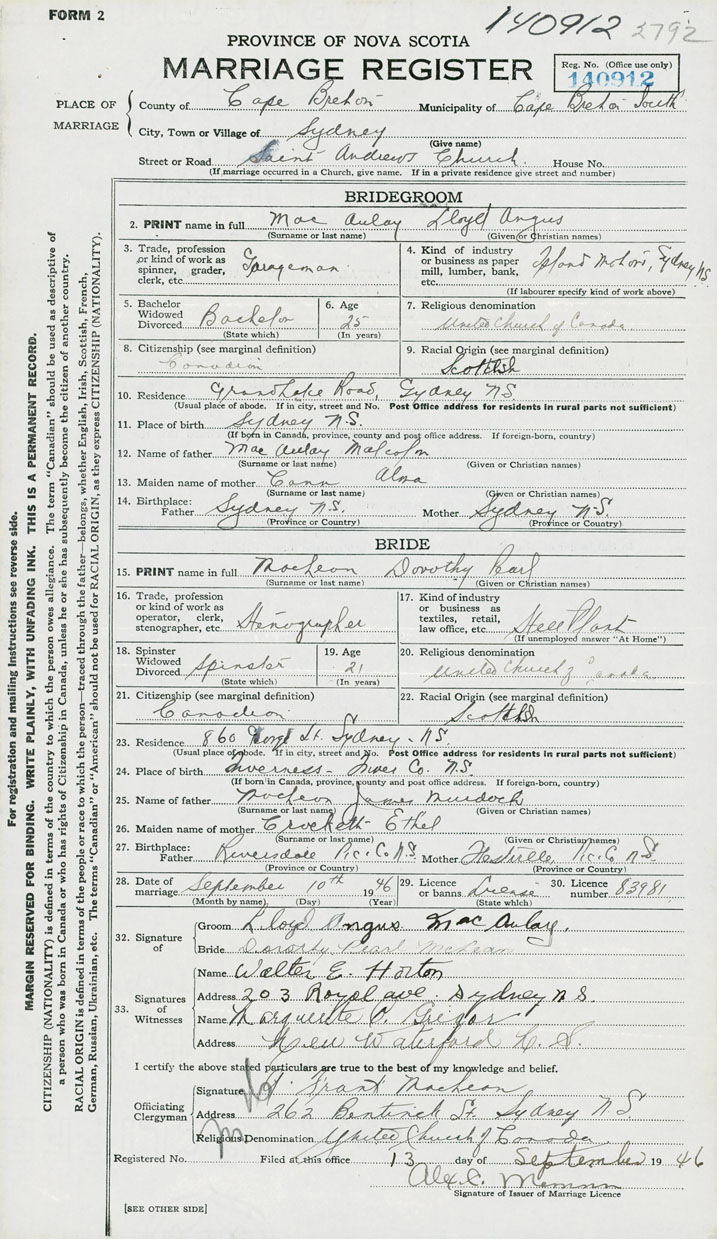 FORM 2
140912 2792
PROVINCE OF NOVA SCOTIA
MARRIAGE REGISTER
Reg. No. (Office use only)
140912
PLACE OF MARRIAGE
County of Cape Breton Municipality of Cape Breton South
City, Town or Village of Sydney
(Give name)
Street or Road Saint Andrews Church House No.
(If marriage occurred in a Church, give name. If in a private residence give street and number)
BRIDEGROOM
2. PRINT name in full Mac Aulay Lloyd Angus
(Surname or last name) (Given or Christian names)
3. Trade, profession or kind of work as spinner, grader, clerk, etc.
4. Kind of industry or business as paper mill, lumber, bank, etc. Island Motors, Sydney NS
(If labourer specify kind of work above)
5. Bachelor Widowed Divorced Bachelor
(State which)
6. Age 25
(In years)
7. Religious denomination
United Church of Canada
8. Citizenship (see marginal definition)
Canadian
9. Racial Origin (see marginal definition)
Scottish
10. Residence Grand Lake Road, Sydney NS
(Usual place of abode. If in city, street and No. Post Office address for residents in rural parts not sufficient)
11. Place of birth Sydney N.S.
(If born in Canada, province, county and post office address. If foreign-born, country)
12. Name of father Mac Aulay Malcolm
(Surname or last name) (Given or Christian names)
13. Maiden name of mother Cann Alma
(Surname or last name) (Given or Christian names)
14. Birthplace: Father Sydney N.S. Mother Sydney N.S.
(Province or Country) (Province or Country)
BRIDE
15. PRINT name in full MacLean Dorothy Pearl
(Surname or last name) (Given or Christian names)
16. Trade, profession or kind of work as operator, clerk, stenographer, etc Stenographer
17. Kind of industry or business as textiles, retail, law office, etc. Steel Plant
(If unemployed answer "At Home")
18. Spinster Widowed Divorced Spinster
(State which)
19. Age 21
(In years)
20. Religious denomination
United Church of Canada
21. Citizenship (see marginal definition)
Canadian
22. Racial Origin (see marginal definition)
Scottish
23. Residence 860 George St. Sydney N.S.
(Usual place of abode. If in city, street and No. Post Office address for residents in rural parts not sufficient)
24. Place of birth Inverness - Inver Co. N.S.
(If born in Canada, province, county and post office address. If foreign-born, country)
25. Name of father MacLean James Murdoch
(Surname or last name) (Given or Christian names)
26. Maiden name of mother Crockett Ethel
(Surname or last name) (Given or Christian names)
27. Birthplace: Father Riversdale Pic. Co N.S. Mother Pic. Co N.S.
(Province or Country) (Province or Country)
28. Date of marriage September 10th 1946
(Month by name) (Day) (Year)
29. Licence or banns License
(State which)
30. Licence number 83981
32. Signature of
Groom Lloyd Angus MacAulay.
Bride Dorothy Pearl McLean
33. Signatures of Witnesses
Name Walter E. Horton
Address 203 Royal ave. Sydney N S.
Name Marguerite P. Gregor
Address New Waterford N. S.
I certify the above stated particulars are true to the best of my knowledge and belief.
Officiating Clergyman
Signature Frank MacLean
Address 262 Bentinck St. Sydney N S
Religious Denomination United Church of Canada
Registered No. Filed at this office 13 day of September 1946
Alex. C.
Signature of Issuer of Marriage Licence
[SEE OTHER SIDE]
For registration and mailing instructions see reverse side.
MARGIN RESERVED FOR BINDING. WRITE PLAINLY, WITH UNFADING INK. THIS IS A PERMANENT RECORD.
CITIZENSHIP (NATIONALITY) is defined in terms of the country to which the person owes allegiance. The term "Canadian" should be used as descriptive of
a person who was born in Canada or who has rights of Citizenship in Canada, unless he or she has subsequently become the citizen of another country.
RACIAL ORIGIN is defined in terms of the people or race to which the person—traced through the father—belongs, whether English, Irish, Scottish, French,
German, Russian, Ukrainian, etc. The terms "Canadian" or "American" should not be used for RACIAL ORIGIN, as they express CITIZENSHIP (NATIONALITY).